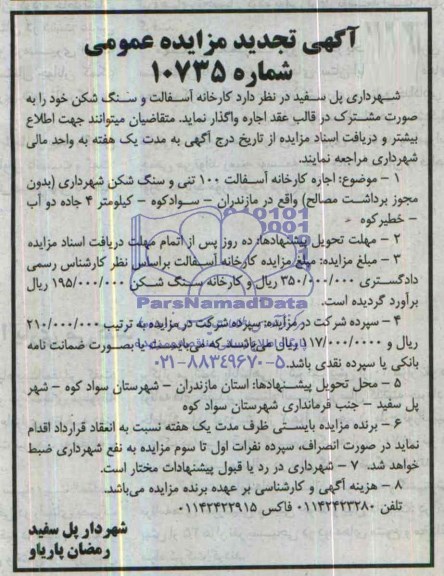 آگهی تجدید مزایده عمومی
شماره ۱۰۷۳۵
شهرداری پل سفید در نظر دارد کارخانه آسفالت و سنگ شکن خود را به
صورت مشترک در قالب عقد اجاره واگذار نماید. متقاضیان میتوانند جهت اطلاع
بیشتر و دریافت اسناد مزایده از تاریخ درج آگهی به مدت یک هفته به واحد مالی
شهرداری مراجعه نمایند.
۱ - موضوع: اجاره کارخانه آسفالت ۱۰۰ تنی و سنگ شکن شهرداری (بدون
مجوز برداشت مصالح) واقع در مازندران - سوادکوه - کیلومتر ۴ جاده دو آب
- خطیرکوه
۲ - مهلت تحویل پیشنهادها: ده روز پس از اتمام مهلت دریافت اسناد مزایده
۳ - مبلغ مزایده: مبلغ مزایده کارخانه آسفالت براساس نظر کارشناس رسمی
دادگستری ۳۵۰/۰۰۰/۰۰۰ ریال و کارخانه سنگ شکن ۱۹۵/۰۰۰/۰۰۰ ریال
برآورد گردیده است.
ParsNamadData
۴ - سپرده شرکت در مزایده: سپرده شرکت در مزایده به ترتیب ۲۱۰/۰۰۰/۰۰۰
ریال و ۱۱۷/۰۰۰/۰۰۰۰ ریال می‌باشد که می‌بایست یا بصورت ضمانت نامه
بانکی یا سپرده نقدی باشد.
۰۲۱-۸۸۳۴۹۶۷۰-۵
۵ - محل تحویل پیشنهادها: استان مازندران - شهرستان سواد کوه - شهر
پل سفید - جنب فرمانداری شهرستان سواد کوه
۶ - برنده مزایده بایستی ظرف مدت یک هفته نسبت به انعقاد قرارداد اقدام
نماید در صورت انصراف، سپرده نفرات اول تا سوم مزایده به نفع شهرداری ضبط
خواهد شد. ۷ - شهرداری در رد یا قبول پیشنهادات مختار است.
۸ - هزینه آگهی و کارشناسی بر عهده برنده مزایده می‌باشد.
تلفن ۰۱۱۴۲۴۲۳۲۸۰ فاکس ۰۱۱۴۲۴۲۲۹۱۵
شهردار پل سفید
رمضان پاریاو